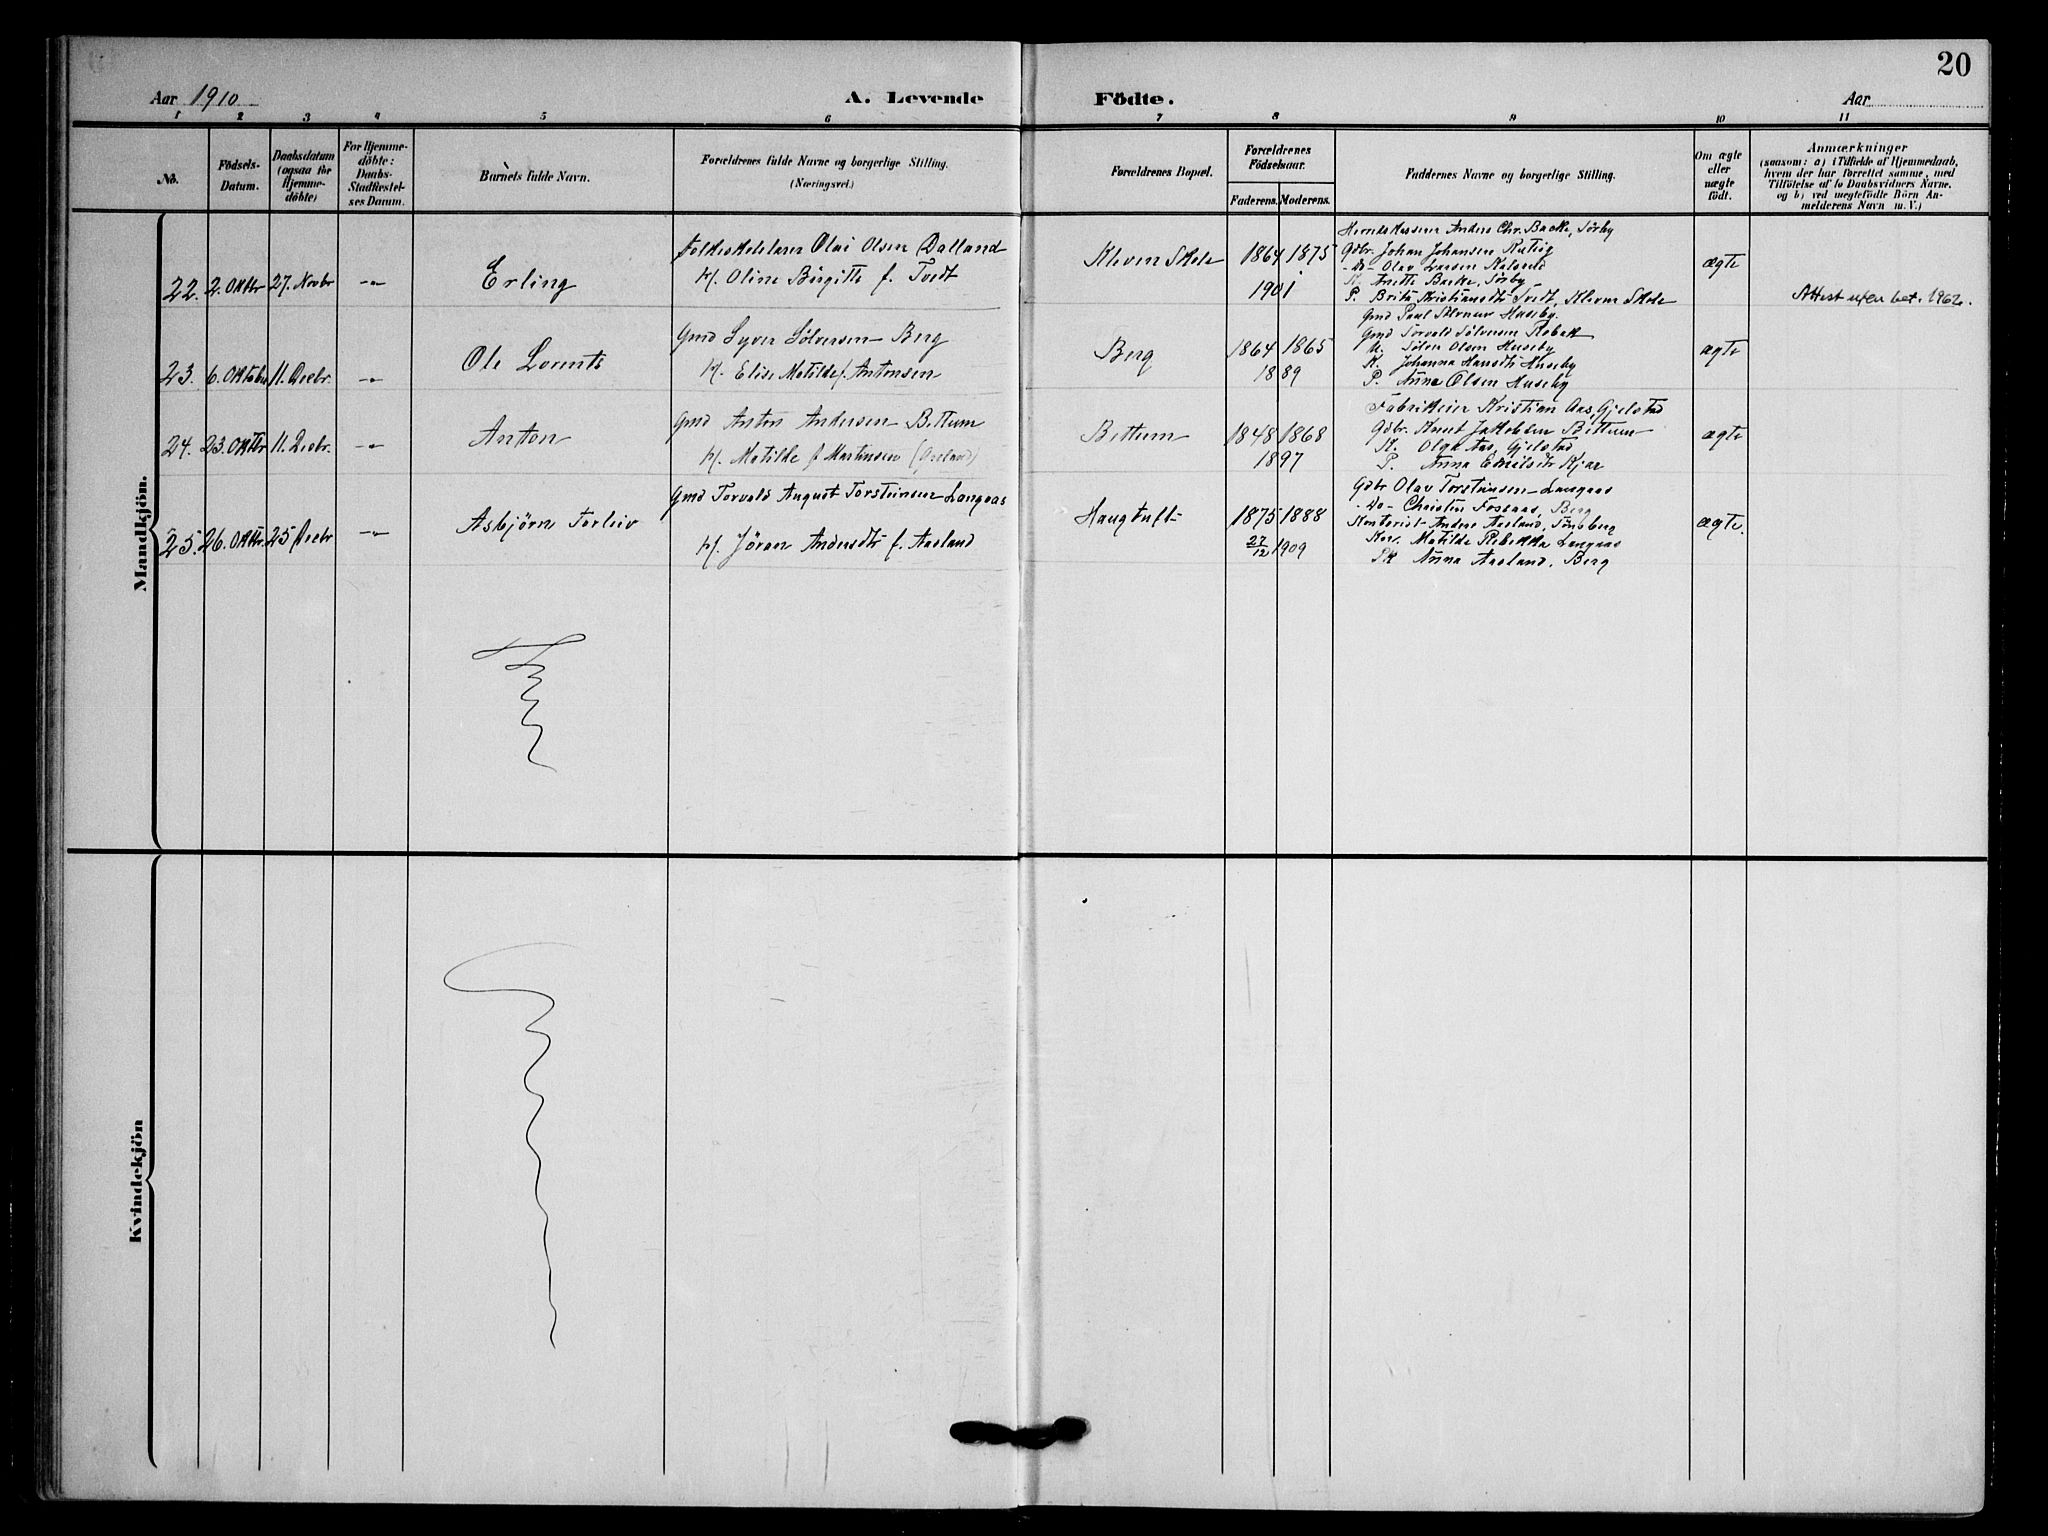 20
Aar 1910
A. Levende Födte.
Aar
1 2 3 4 5 6 7 8 9 10 11
No.
Födsels-Datum.
Daabsdatum (ogsaa for Hjemme-döbte)
For Hjemme-döbte: Daabs-Stadfæstel-ses Datum.
Barnets fulde Navn.
Forældrenes fulde Navne og borgerlige Stilling. (Næringsvei.)
Forældrenes Bopæl.
Forældrenes Födselsaar.
Faderens. Moderens.
Faddernes Navne og borgerlige Stilling.
Om ægte eller uægte födt.
Anmærkninger
(saasom: a) i Tilfælde af Hjemmedaab, hvem der har forrettet samme, med Tilföielse af to Daabsvidners Navne, og b) ved uægtefödte Börn Anmelderens Navn m. V.)
Mandkjön.
22. 2. Oktbr 27. Novbr -"- Erling
Folkeskolelærer Olai Olsen Dalland
H. Oline Birgitte f. Tvedt
Kleven Skole
1864 1875
1901
Anders Chr. Backe, Sörby
Gdbr. Johan Johansen
-Do- Olav Larsen
K. Anette Backe, Sörby
P. Brita Kristiansdtr Tvedt, Kleven Skole
ægte
Attest uten bet. 1962.
23. 6. Oktober 11. Decbr. -"- Ole Lorents
Gmd Syver Sölvesen Berg
H. Elise Matilde f. Antonsen
Berg
1864 1865
1889
Gmd Paul Huseby.
Gmd Torvald Sölvesen Robæk
U. Sören Olsen Huseby
K. Johanna Hansdtr Huseby
P. Anna Olsen Huseby
ægte
24. 23. Oktbr 11. Decbr. -"- Anton
Gmd Anton Andersen Bettum
H. Matilde f Martinsen
Bettum
1848 1868
1897
Kristian Aas, Gjelstad
Gdbr. Knut Jakobsen Bettum
K. Olga Aas, Gjelstad
P. Anna Emilsdtr Kjær
ægte
25. 26. Oktbr. 25 Decbr -"- Asbjörn Torleiv
Gmd Torvald August Torsteinsen Langaas
H. Jöran Andersdtr f. Aasland
Haugtuft
1875 1888
27/12 1909
Gdbr Olav Torsteinsen Langaas
-Do- Christen Fossaas, Berg
Kontorist Anders Aasland, Tönsberg
Kon. Matilde Rebekka Langaas
Pk Anna Aasland, Berg
ægte.
Kvindekjön